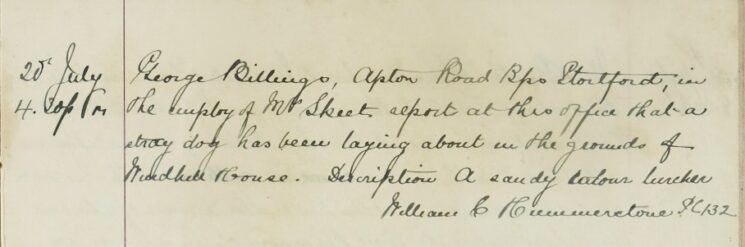 20 July George Billings, Apton Road Bps Stortford, in
4.30 pm the employ of Mr Skeet report at this office that a
stray dog has been laying about in the grounds of
Windhill House. Discription A sandy colour lurcher
William C Hummerstone PC 132